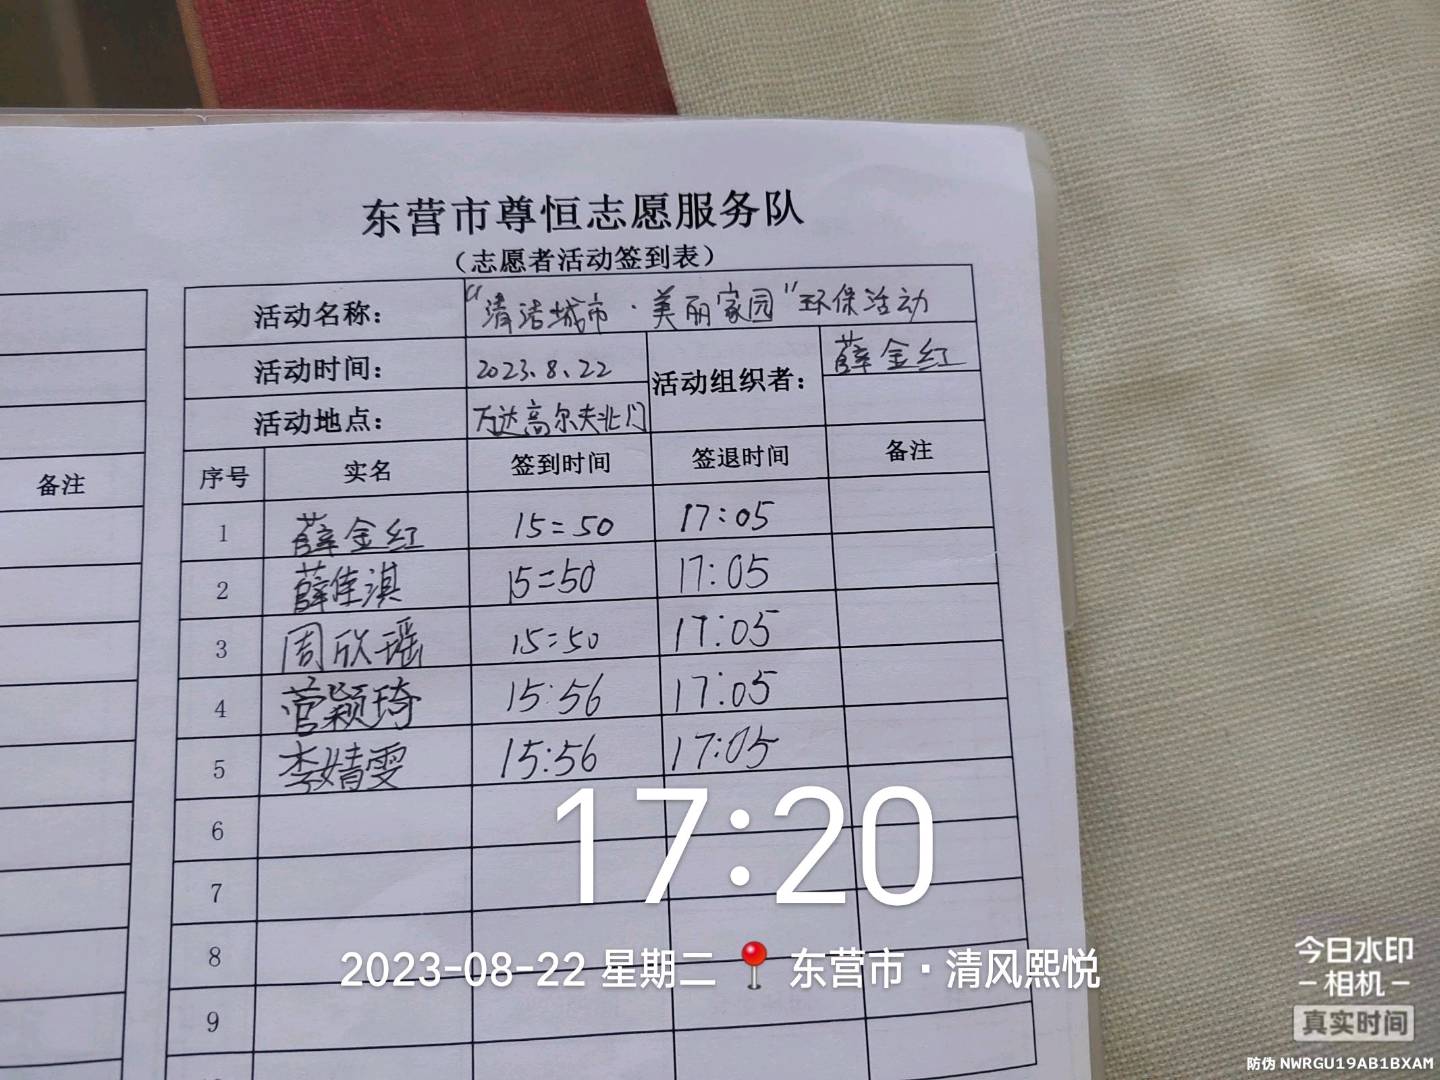 东营市尊恒志愿服务队
（志愿者活动签到表）
活动名称： “清洁城市·美丽家园”环保活动
活动时间： 2023.8.22 活动组织者： 薛金红
活动地点： 万达高尔夫北门
备注
序号 实名 签到时间 签退时间 备注
1 薛金红 15=50 17:05
2 薛佳淇 15=50 17:05
3 周欣瑶 15=50 17:05
4 菅颖琦 15:56 17:05
5 李婧雯 15:56 17:05
6
7
8
9
17:20
2023-08-22 星期二 东营市·清风熙悦
今日水印
-相机-
真实时间
防伪 NWRGU19AB1BXAM